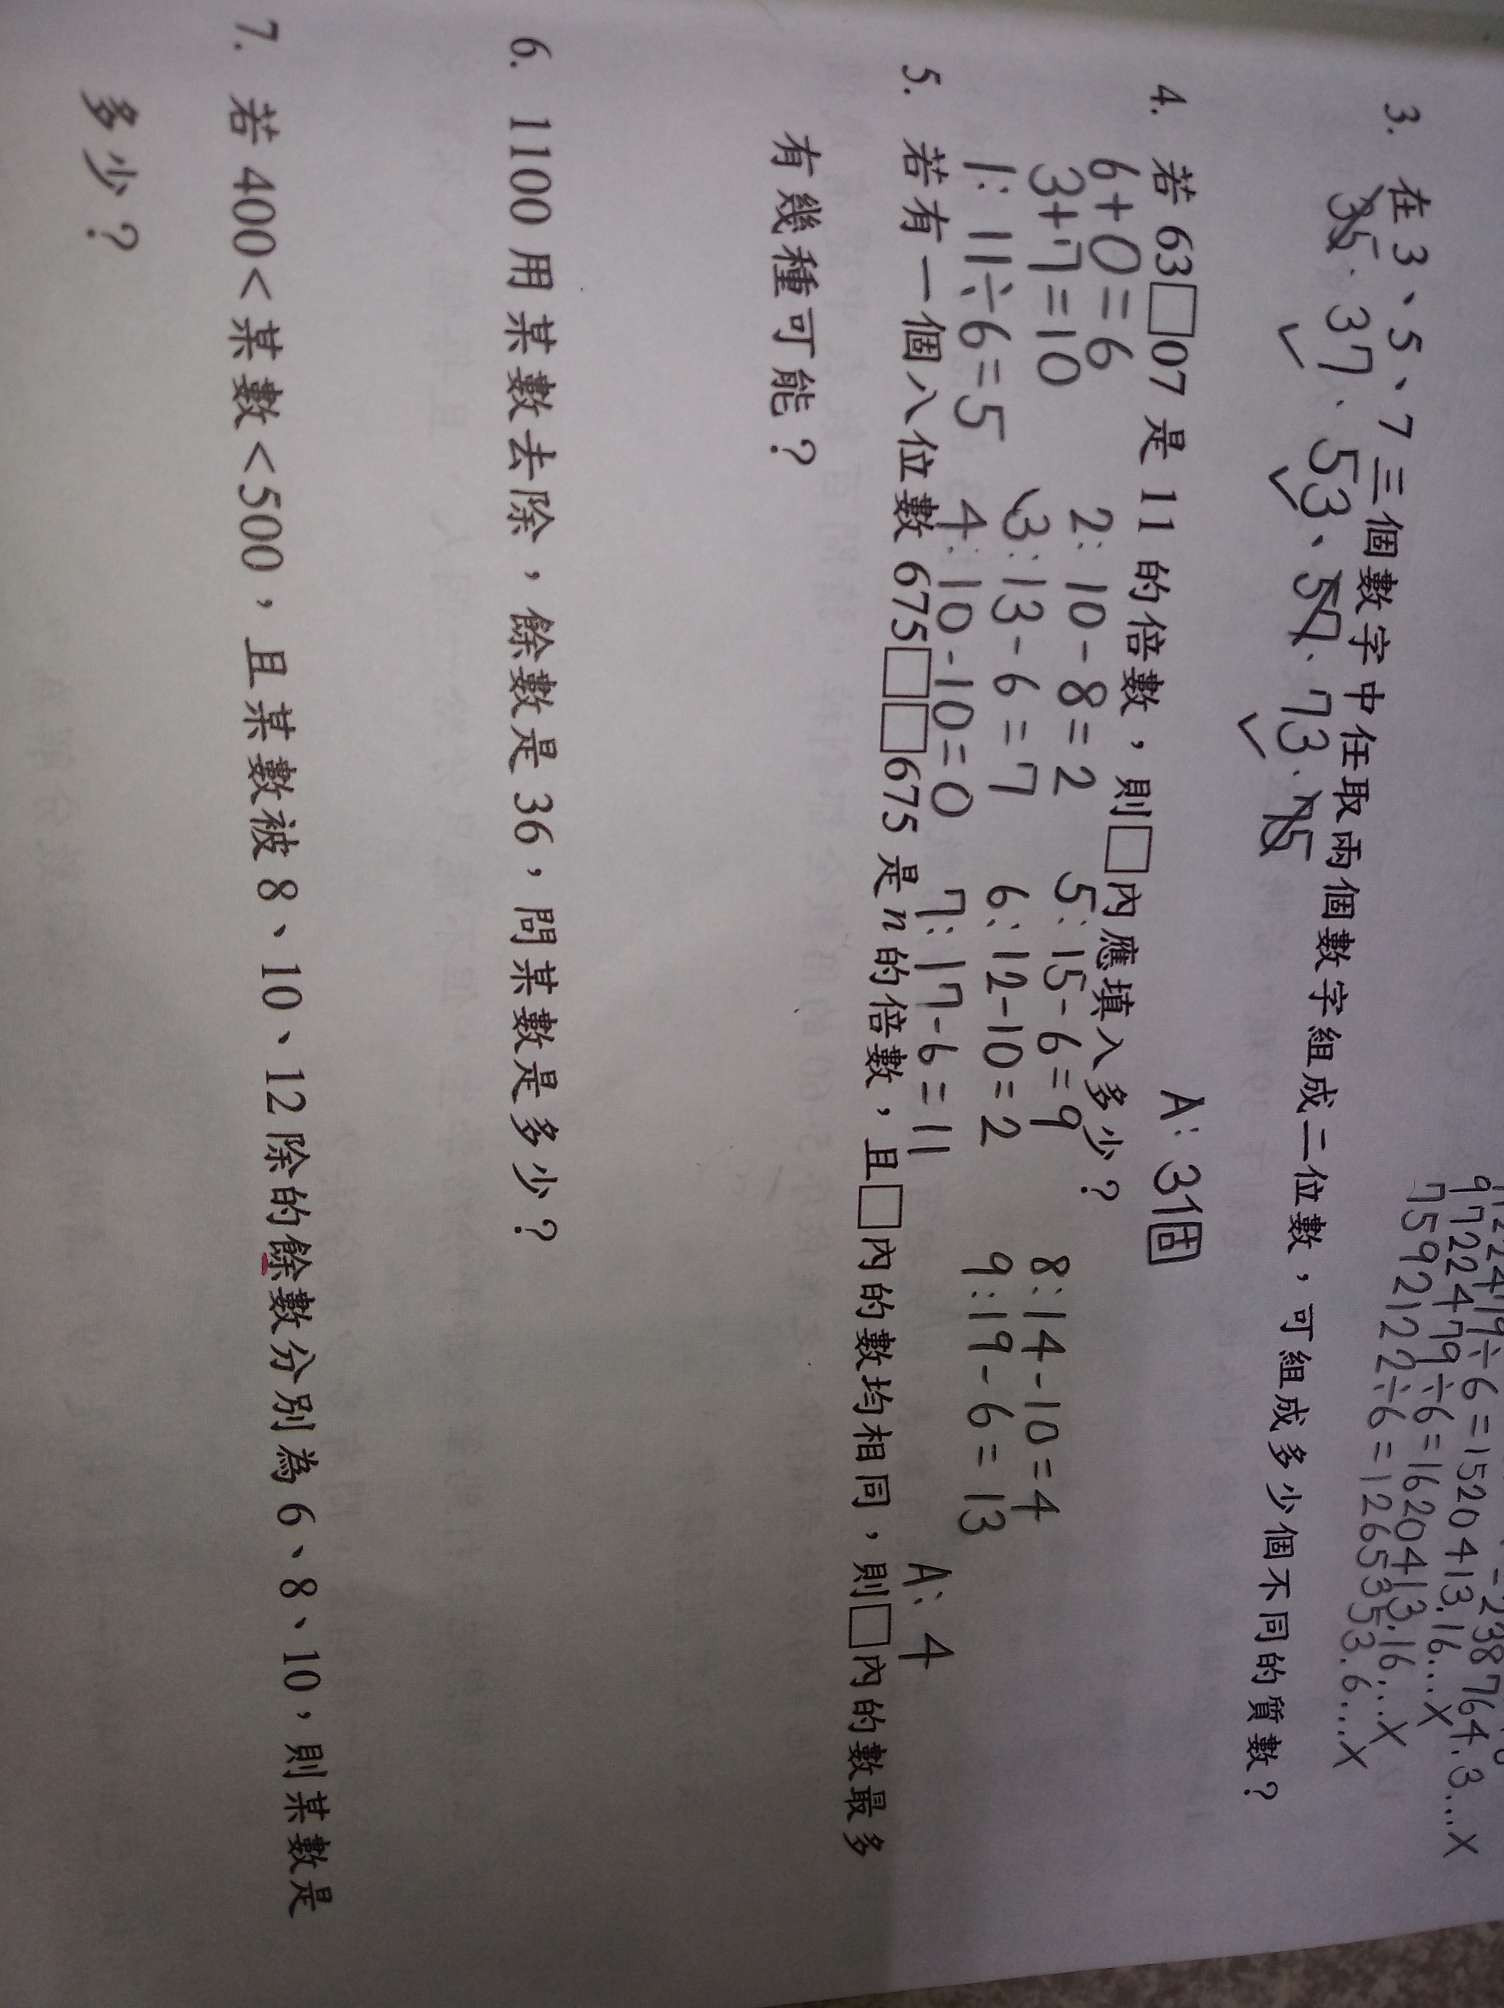 -238764.3...x
÷6=1520413.16...x
9722479÷6=1620413.16...x
7592122÷6=1265353.6...x
3. 在3、5、7三個數字中任取兩個數字組成二位數，可組成多少個不同的質數？
35、37、53、57、73、75
A：3個
4. 若63□07是11的倍數，則□內應填入多少？
6+0=6 2：10-8=2 5：15-6=9 8：14-10=4
3+7=10 3：13-6=7 6：12-10=2 9：19-6=13
1：11÷6=5 4：10-10=0 7：17-6=11 A：4
5. 若有一個八位數675□□675是n的倍數，且□內的數均相同，則□內的數最多
有幾種可能？
6. 1100用某數去除，餘數是36，問某數是多少？
7. 若400<某數<500，且某數被8、10、12除的餘數分別為6、8、10，則某數是
多少？